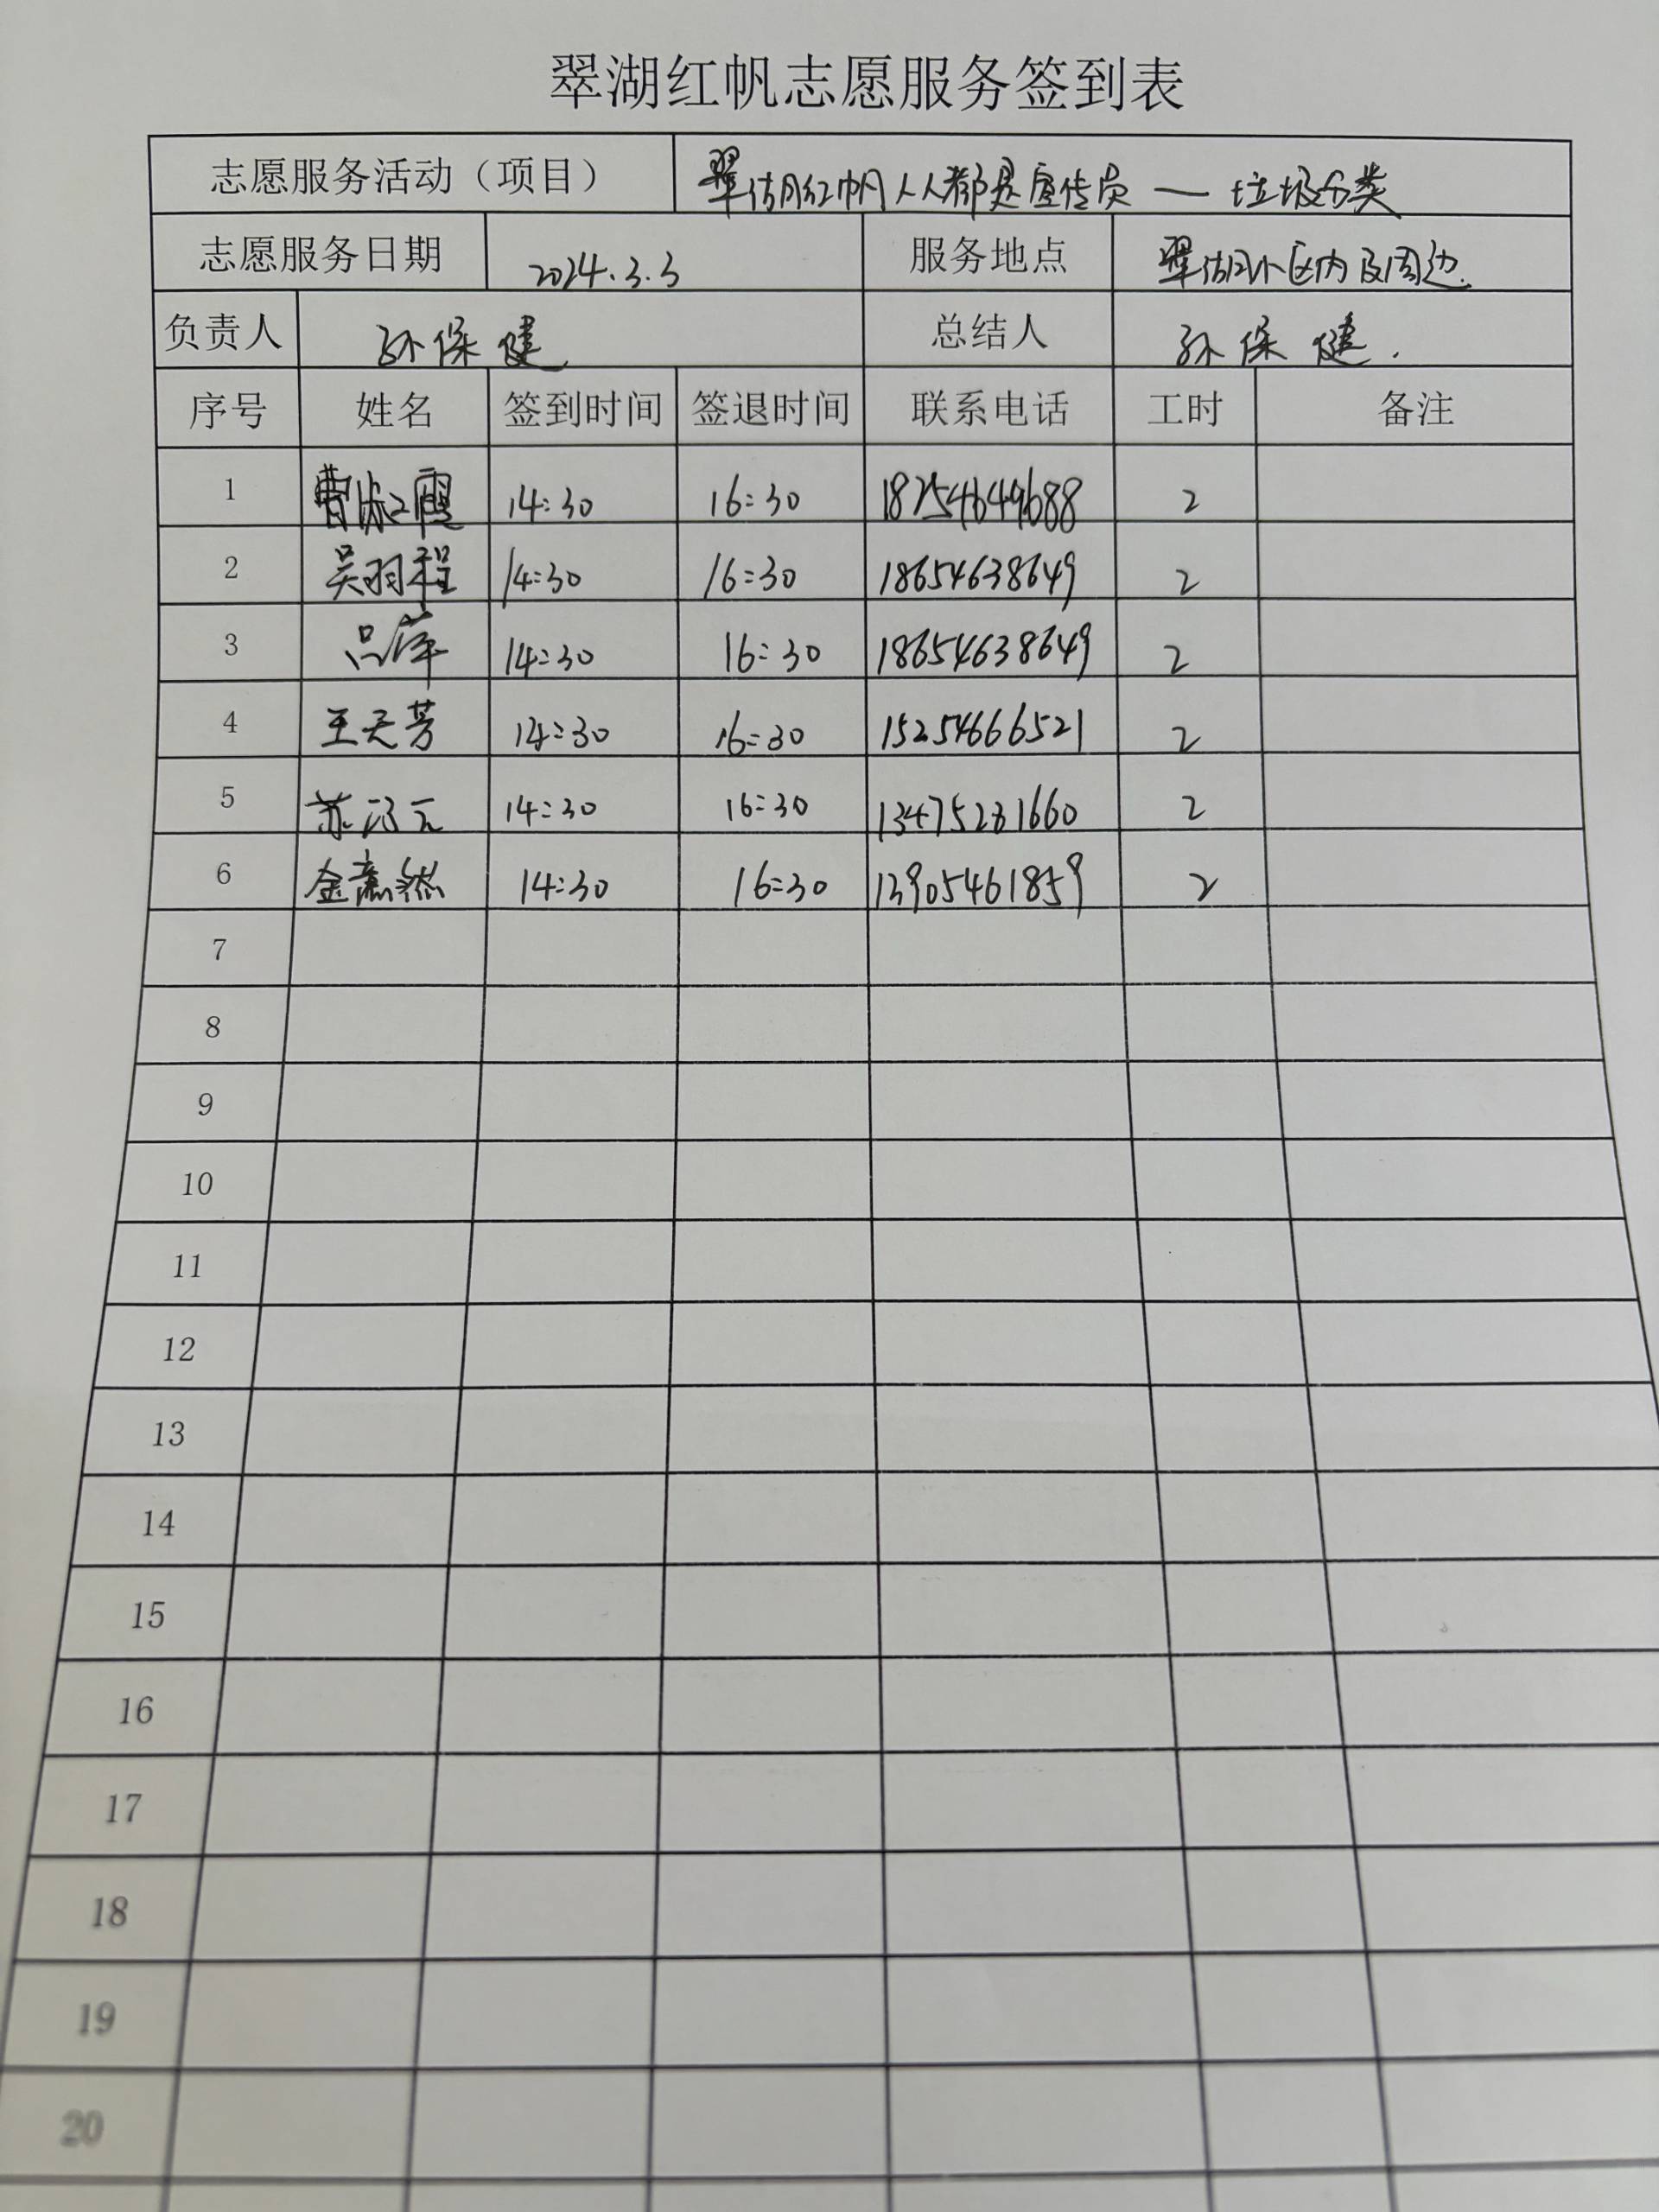 翠湖红帆志愿服务签到表
志愿服务活动（项目） 翠湖红帆人人都是宣传员 — 垃圾分类
志愿服务日期 2024.3.3 服务地点 翠湖小区内及周边.
负责人 孙保健 总结人 孙保健.
序号 姓名 签到时间 签退时间 联系电话 工时 备注
1 曹淑霞 14:30 16:30 18254649688 2
2 吴羽程 14:30 16:30 18654638649 2
3 吕萍 14:30 16:30 18654638649 2
4 王天芳 14:30 16:30 15254666521 2
5 苏 14:30 16:30 13475281660 2
6 金 14:30 16:30 13905461859 2
7
8
9
10
11
12
13
14
15
16
17
18
19
20